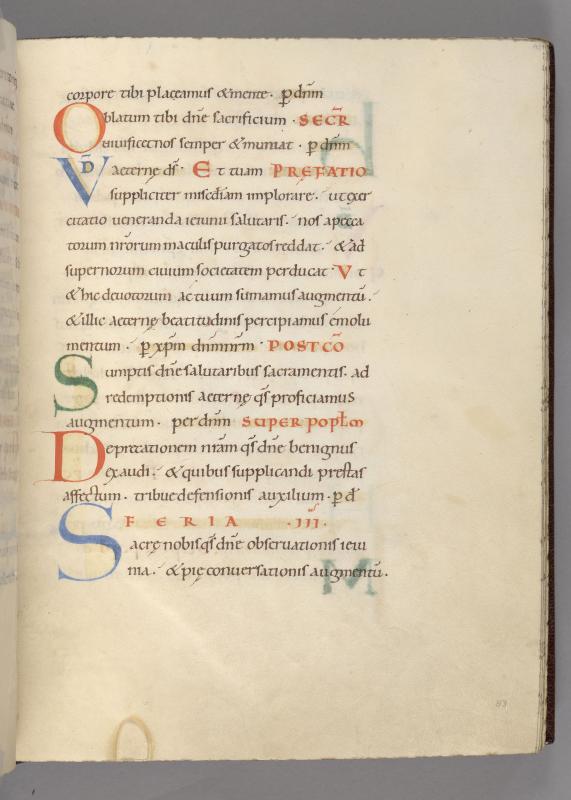 corpore tibi placeamus & mente · p̱ dn̄m
Oblatum tibi dn̄e sacrificium · SECR̄
uiuificet nos semper & muniat · p̱ dn̄m
VD̄ aeternę dſ̄ · Et tuam PREFATIO
suppliciter misc̄diam implorare · ut exer
citatio ueneranda ieiunii salutaris · nos a pecca
torum nr̄orum maculis purgatos reddat · & ad
supernorum ciuium societatem perducat · Vt
& hic deuotorum actuum sumamus augmentū ·
& illic aeternę beatitudinis percipiamus emolu
mentum · p̱ xp̄m dn̄m nr̄m · POSTCŌ
Sumptis dn̄e salutaribus sacramentis · ad
redemptionis aeternę qs̄ proficiamus
augmentum · per dn̄m SUPER POPL̄M
Deprecationem nr̄am qs̄ dn̄e benignus
exaudi · & quibus supplicandi prestas
affectum · tribue defensionis auxilium · p̱ d̄
FERIA · III ·
Sacrę nobis qs̄ dn̄e obseruationis ieiu
nia · & pię conuersationis augmentū ·